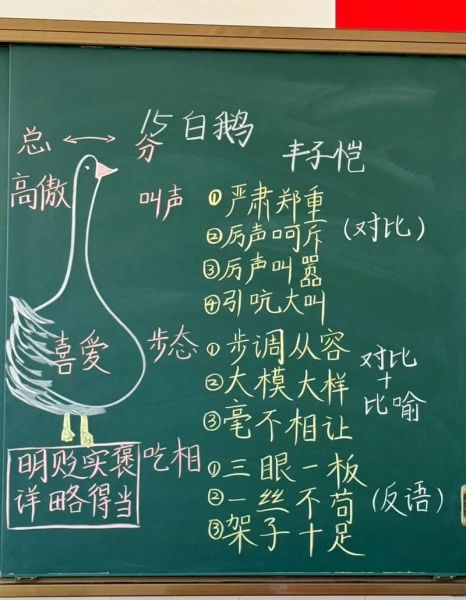 15 白鹅
丰子恺
总 ↔ 分
高傲
喜爱
叫声
①严肃郑重
②厉声呵斥
③厉声叫嚣
④引吭大叫
(对比)
步态
①步调从容
②大模大样
③毫不相让
对比
+
比喻
吃相
①三眼一板
②一丝不苟
③架子十足
(反语)
明贬实褒
详略得当